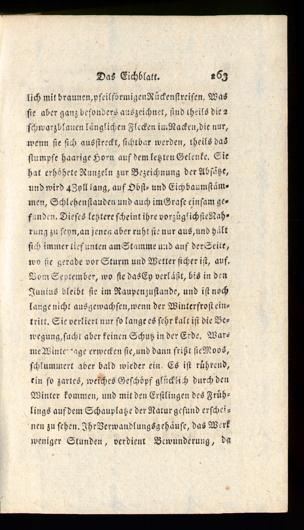 Das Eichblatt. 263
lich mit braunen, pfeilförmigen Rückenstreifen. Was
sie aber ganz besonders auszeichnet, sind theils die 2
schwarzblauen länglichen Flecken im Nacken, die nur,
wenn sie sich ausstreckt, sichtbar werden, theils das
stumpfe haarige Horn auf dem letzten Gelenke. Sie
hat erhöhete Runzeln zur Bezeichnung der Absätze,
und wird 4 Zoll lang, auf Obst- und Eichbaumstäm-
men, Schlehenstauden und auch im Grase einsam ge-
funden. Dieses letztere scheint ihre vorzüglichste Nah-
rung zu seyn, an jenen aber ruht sie nur aus, und hält
sich immer tief unten am Stamme und auf der Seite,
wo sie gerade vor Sturm und Wetter sicher ist, auf.
Vom September, wo sie das Ey verläßt, bis in den
Junius bleibt sie im Raupenzustande, und ist noch
lange nicht ausgewachsen, wenn der Winterfrost ein-
tritt. Sie verliert nur so lange es sehr kalt ist die Be-
wegung, sucht aber keinen Schutz in der Erde. War-
me Wintertage erwecken sie, und dann frißt sie Moos,
schlummert aber bald wieder ein. Es ist rührend,
ein so zartes, weiches Geschöpf glücklich durch den
Winter kommen, und mit den Erstlingen des Früh-
lings auf dem Schauplatze der Natur gesund erschei-
nen zu sehen. Ihr Verwandlungsgehäuse, das Werk
weniger Stunden, verdient Bewunderung, da